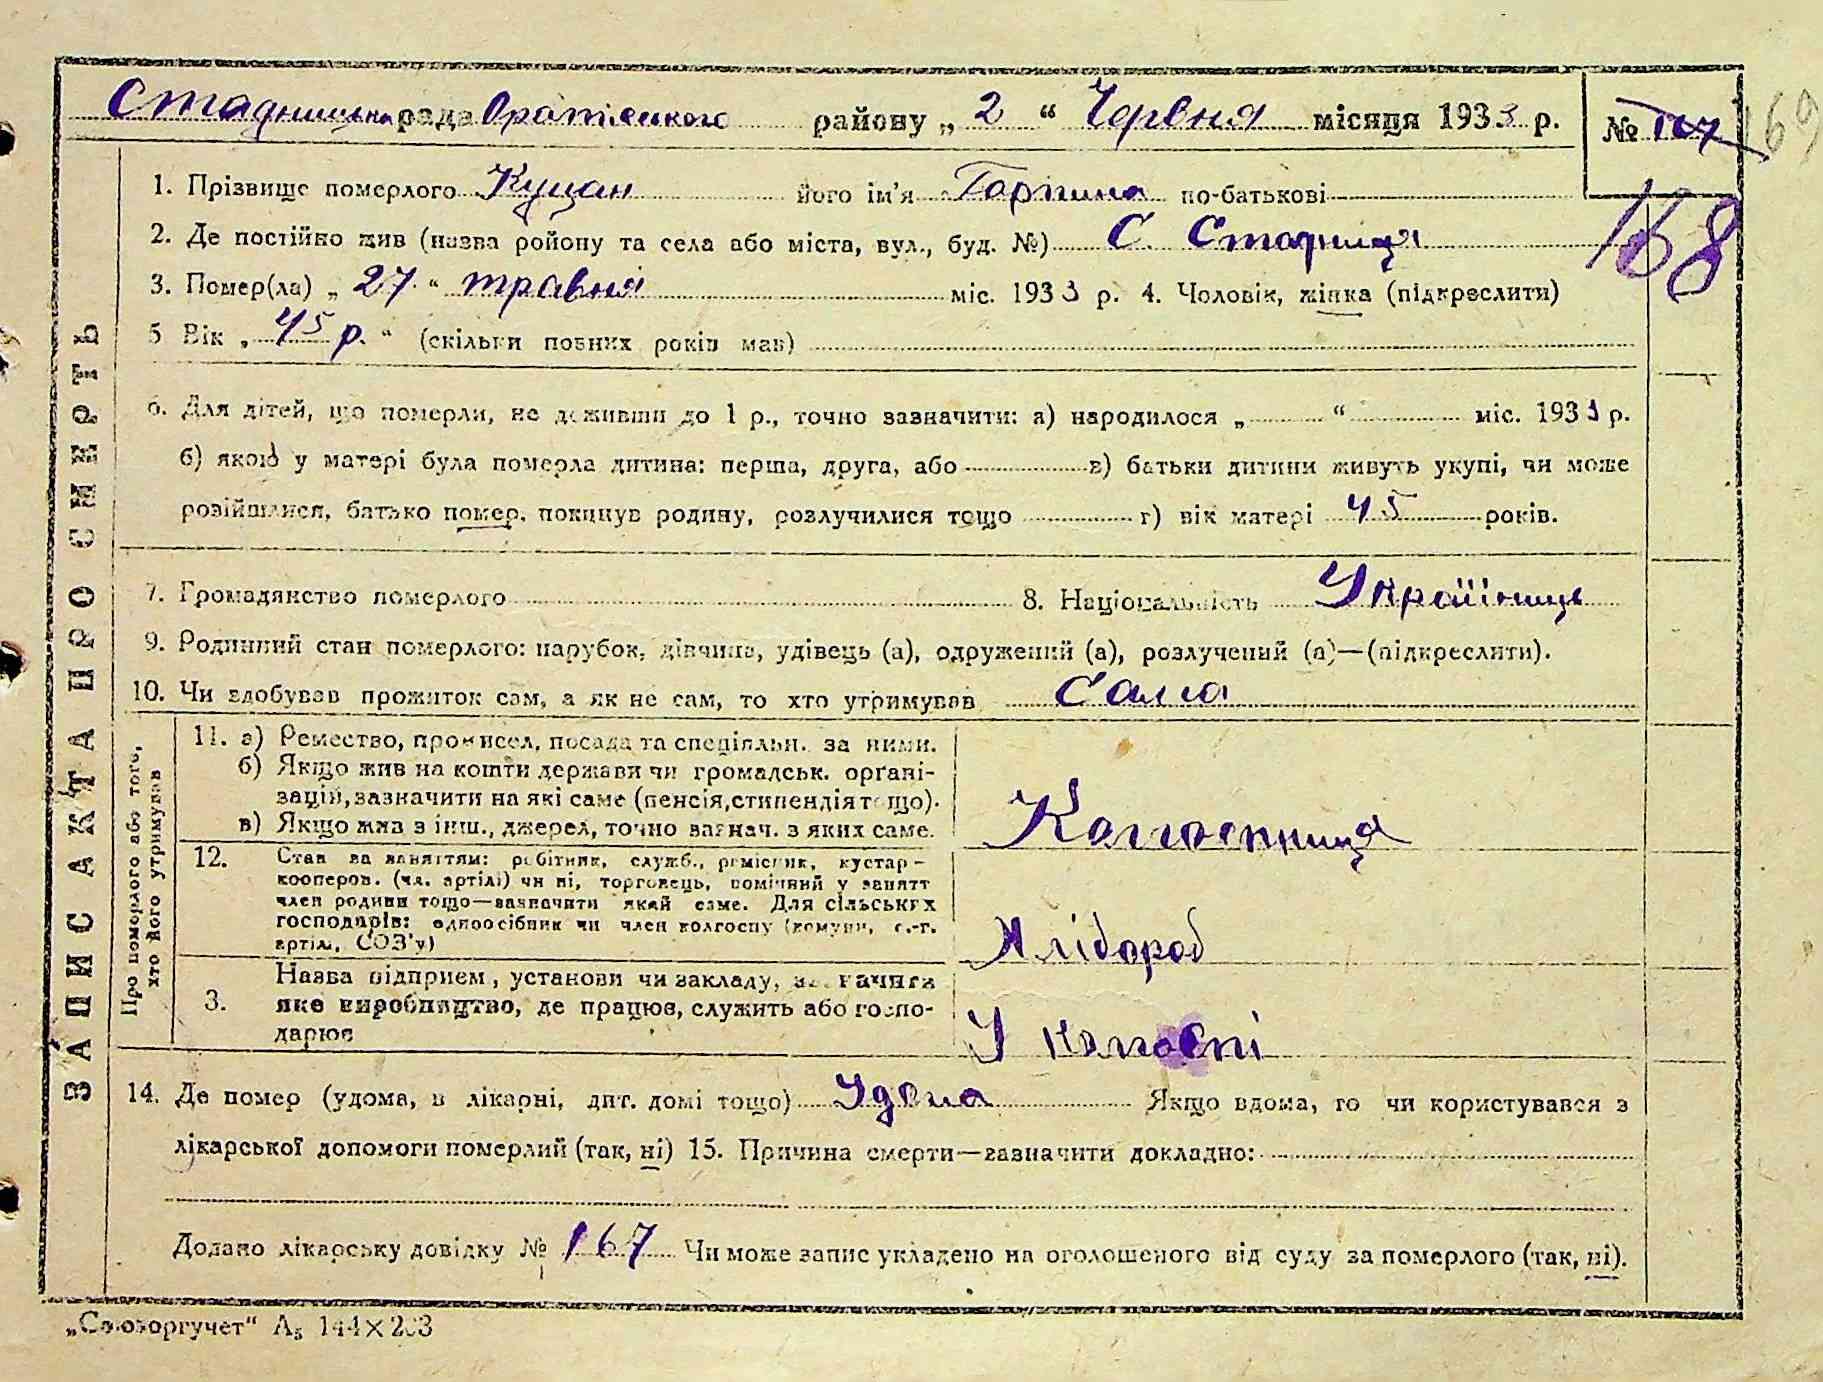 Стадницька рада Оратівського району „ 2 “ Червня місяця 1933 р. № 167 169
1. Прізвище померлого Куцан його ім'я Горпина по-батькові
168
2. Де постійно жив (назва ройону та села або міста, вул., буд. №) С. Стадниця
3. Помер(ла) „ 27 “ травня міс. 1933 р. 4. Чоловік, жінка (підкреслити)
5 Вік „ 45 р. “ (скільки повних років мав)
6. Для дітей, що померли, не доживши до 1 р., точно зазначити: а) народилося „ “ міс. 1933 р.
б) якою у матері була померла дитина: перша, друга, або в) батьки дитини живуть укупі, чи може
розійшлися, батько помер, покинув родину, розлучилися тощо г) вік матері 45 років.
7. Громадянство померлого 8. Національність Українець
9. Родинний стан померлого: парубок, дівчина, удівець (а), одружений (а), розлучений (а)—(підкреслити).
10. Чи здобував прожиток сам, а як не сам, то хто утримував Сама
ЗАПИС АКТА ПРО СМЕРТЬ
Про померлого або того,
хто його утримував
11. а) Ремество, промисел, посада та спеціяльн. за ними.
б) Якщо жив на кошти держави чи громадськ. органі-
зацій, зазначити на які саме (пенсія, стипендія тощо).
в) Якщо жив з інш., джерел, точно зазнач. з яких саме. Колгоспниця
12. Стан за заняттям: робітник, служб., ремісник, кустар-
кооперов. (чл. артілі) чи ні, торговець, помічний у занятт
член родини тощо—зазначити який саме. Для сільських
господарів: одноосібник чи член колгоспу (комуни, с.-г.
артілі, СОЗ'у) Хлібороб
Назва підприєм, установи чи закладу, зазначити
3. яке виробництво, де працює, служить або госпо-
дарює У колгоспі
14. Де помер (удома, в лікарні, дит. домі тощо) Удома Якщо вдома, то чи користувався з
лікарської допомоги померлий (так, ні) 15. Причина смерти—зазначити докладно:
Додано лікарську довідку № 167 Чи може запис укладено на оголошеного від суду за померлого (так, ні).
„Союзоргучет“ А₅ 144×203